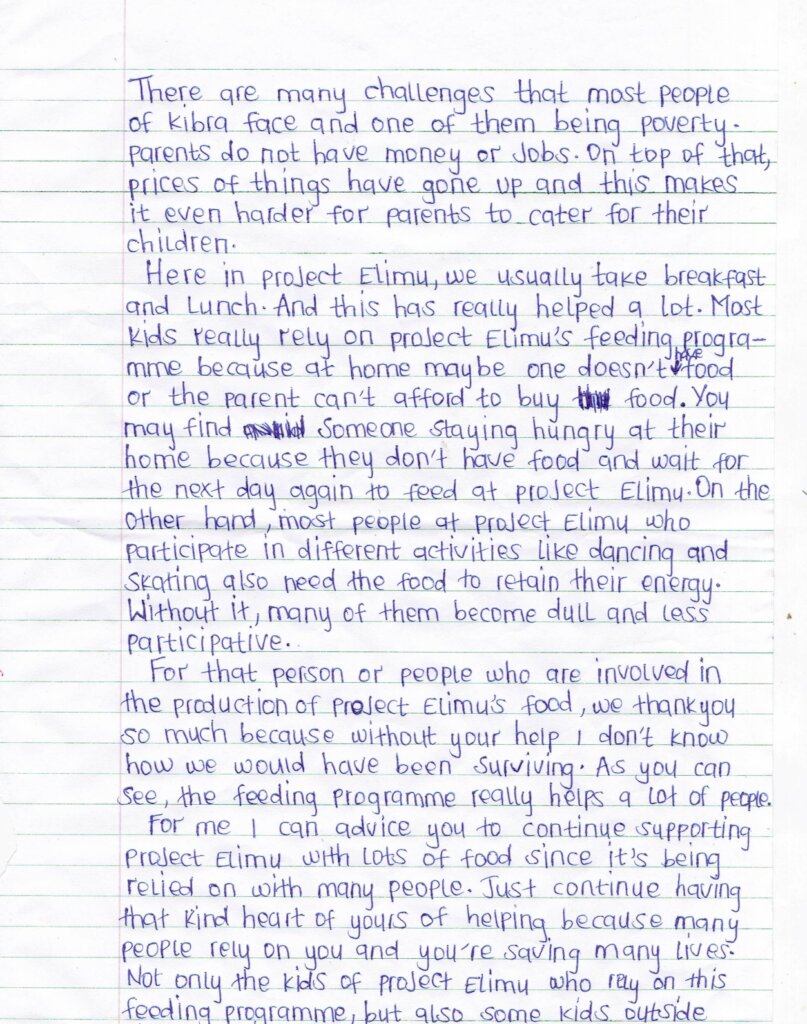 There are many challenges that most people
of Kibra face and one of them being poverty.
Parents do not have money or Jobs. On top of that,
prices of things have gone up and this makes
it even harder for parents to cater for their
children.
Here in project Elimu, we usually take breakfast
and Lunch. And this has really helped a lot. Most
kids really rely on project Elimu's feeding progra-
mme because at home maybe one doesn't have food
or the parent can't afford to buy food. You
may find someone staying hungry at their
home because they don't have food and wait for
the next day again to feed at project Elimu. On the
other hand, most people at project Elimu who
participate in different activities like dancing and
skating also need the food to retain their energy.
Without it, many of them become dull and less
participative.
For that person or people who are involved in
the production of project Elimu's food, we thankyou
so much because without your help I don't know
how we would have been surviving. As you can
see, the feeding programme really helps a lot of people.
For me I can advice you to continue supporting
project Elimu with lots of food since it's being
relied on with many people. Just continue having
that kind heart of yours of helping because many
people rely on you and you're saving many lives.
Not only the kids of project Elimu who rely on this
feeding programme, but also some kids outside